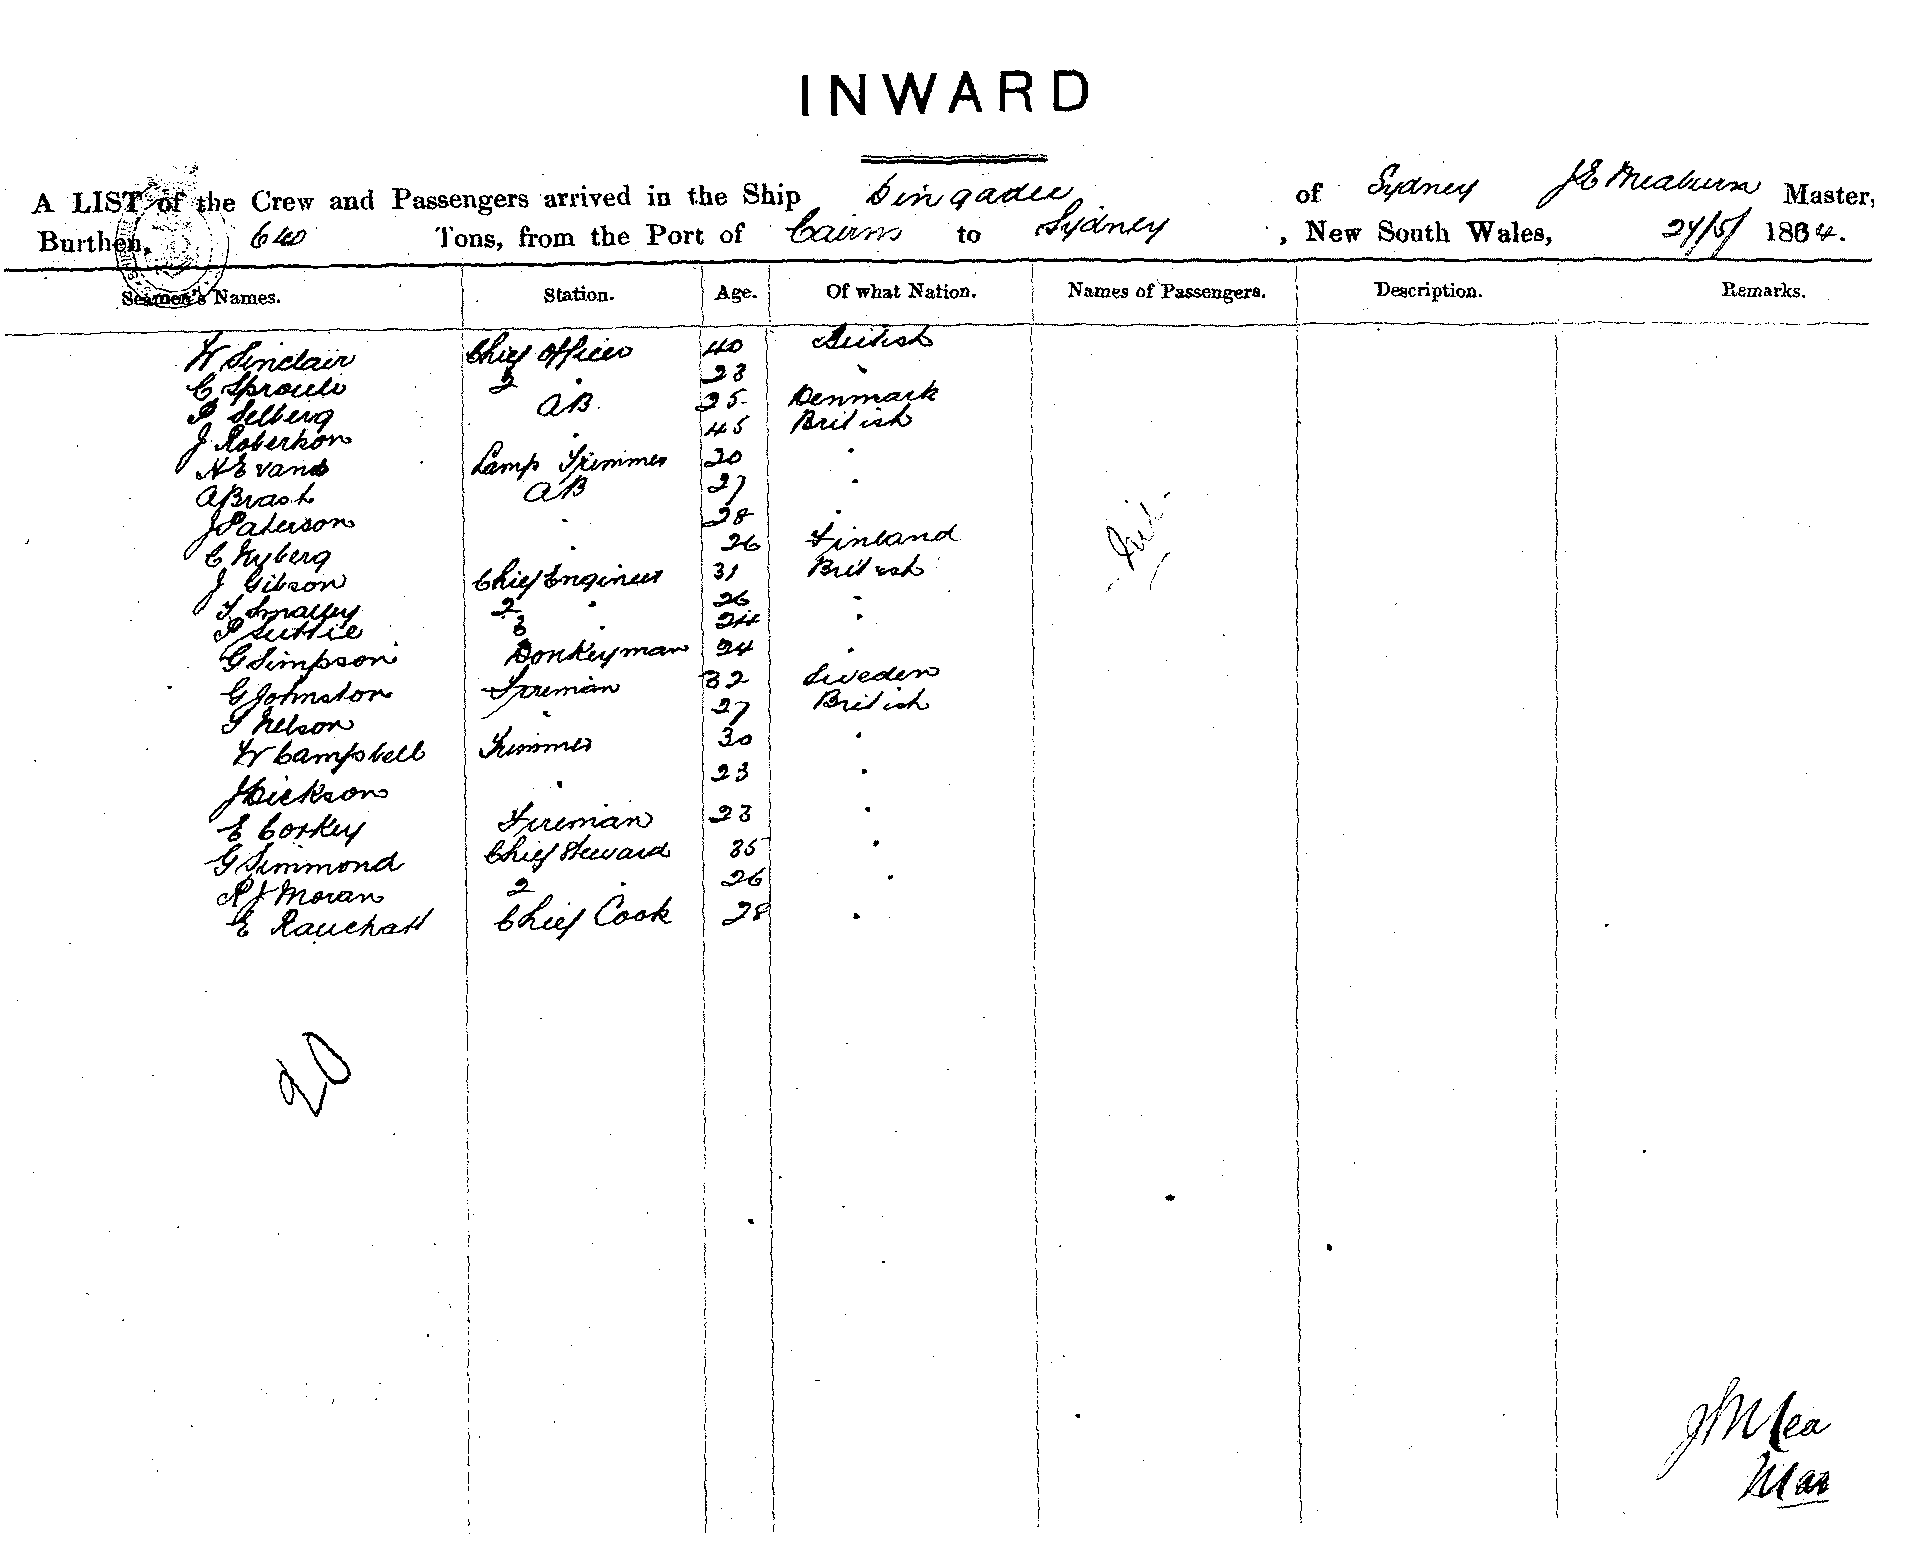 INWARD
A LIST of the Crew and Passengers arrived in the Ship Singadee of Sydney J E Meaburn Master,
Burthen, 640 Tons, from the Port of Cairns to Sydney, New South Wales, 24/5/ 1884.
Seamen's Names. Station. Age. Of what Nation. Names of Passengers. Description. Remarks.
W Sinclair Chief Officer 40 British
C Sproule 2 " 23 "
P Selberg AB 25 Denmark
J Robertson " 45 British
H Evans Lamp Trimmer 20 "
A Brash AB 27 "
J Paterson " 28 "
C Nyberg " 26 Finland
J Gibson Chief Engineer 31 British
T Smalley 2 " 26 "
P Suttie 3 " 24 "
G Simpson Donkeyman 24 "
G Johnston Fireman 32 Sweden
T Nelson " 27 British
W Campbell Trimmer 30 "
J Dickson " 23 "
E Corkey Fireman 23 "
G Simmond Chief Steward 35 "
R J Moran 2 " 26 "
E Chief Cook 28 "
Nil
20
J Mea
Mas